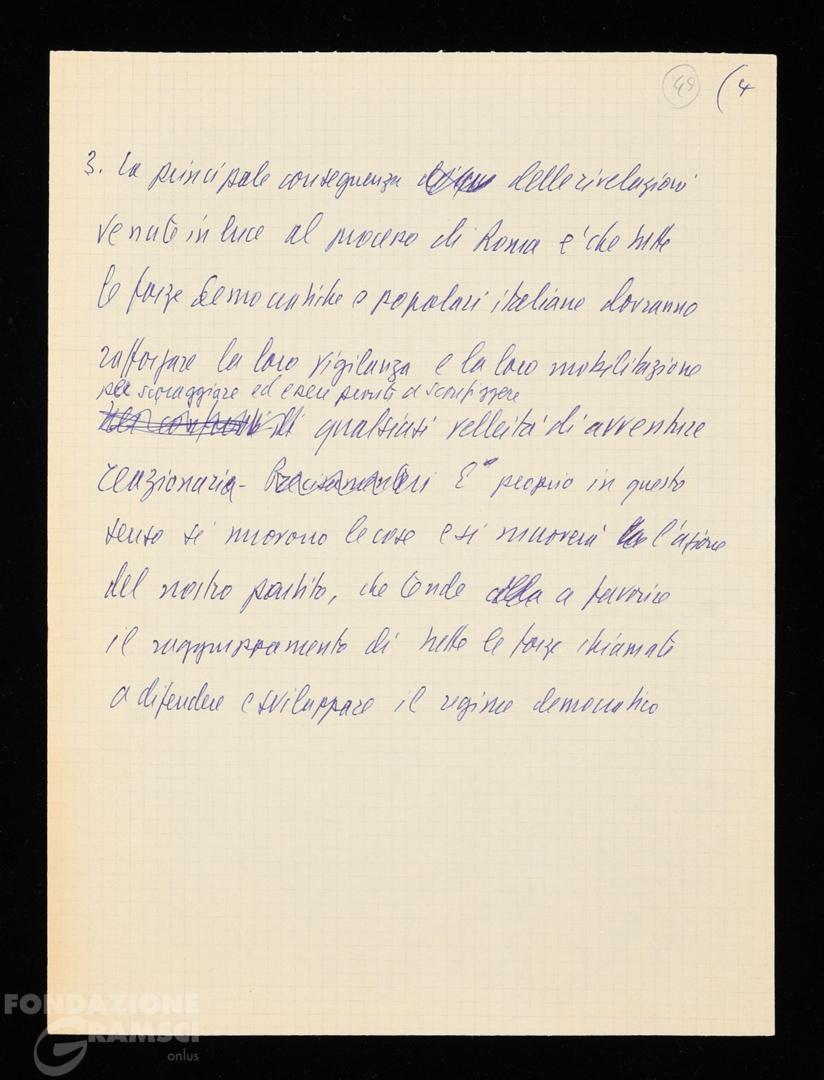 49 (4
3. La principale conseguenza delle rivelazioni
venute in luce al processo di Roma è che tutte
le forze democratiche e popolari italiane dovranno
rafforzare la loro vigilanza e la loro mobilitazione
per scoraggiare ed essere pronti a sconfiggere
qualsiasi velleità di avventure
reazionaria. E' proprio in questo
senso si muovono le cose e si muoverà l'azione
del nostro partito, che tende a favorire
il raggruppamento di tutte le forze chiamate
a difendere e sviluppare il regime democratico
FONDAZIONE
GRAMSCI
onlus